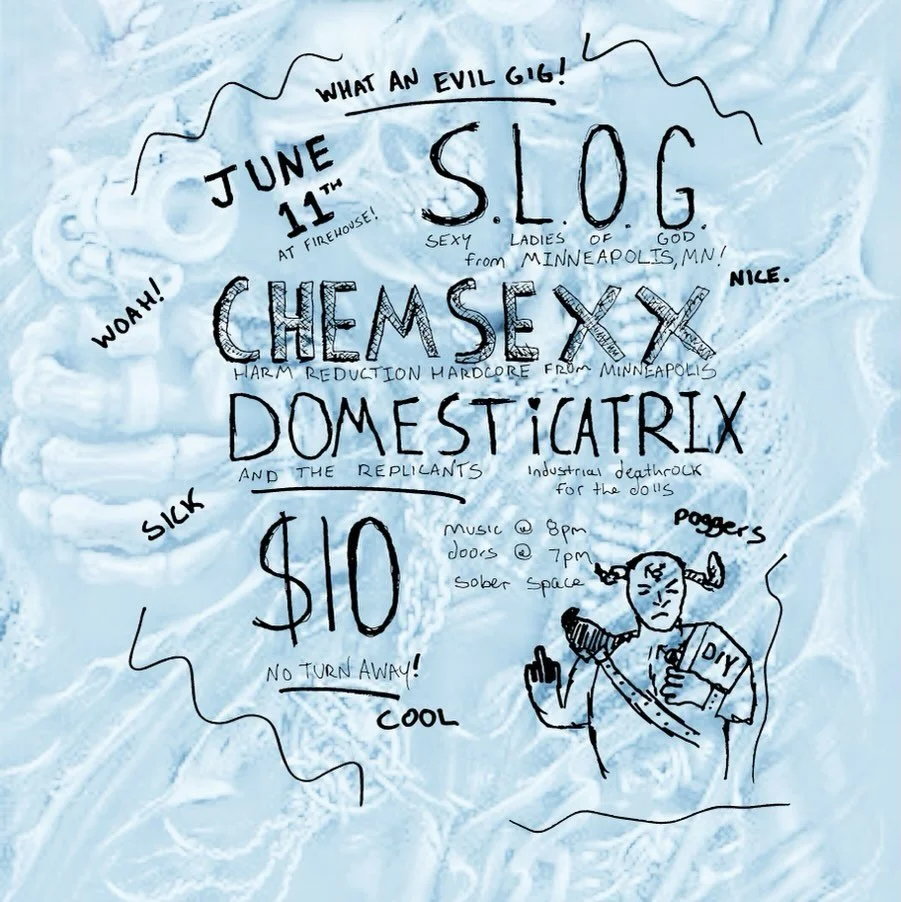 WHAT AN EVIL GIG!
JUNE
11TH
AT FIREHOUSE!
S.L.O.G.
SEXY LADIES OF GOD
from MINNEAPOLIS, MN!
NICE.
WOAH!
CHEMSEXX
HARM REDUCTION HARDCORE FROM MINNEAPOLIS
DOMESTiCATRIX
AND THE REPLICANTS
Industrial deathrock
for the dolls
SICK
$10
music @ 8pm
doors @ 7pm
sober space
poggers
DIY
NO TURN AWAY!
COOL